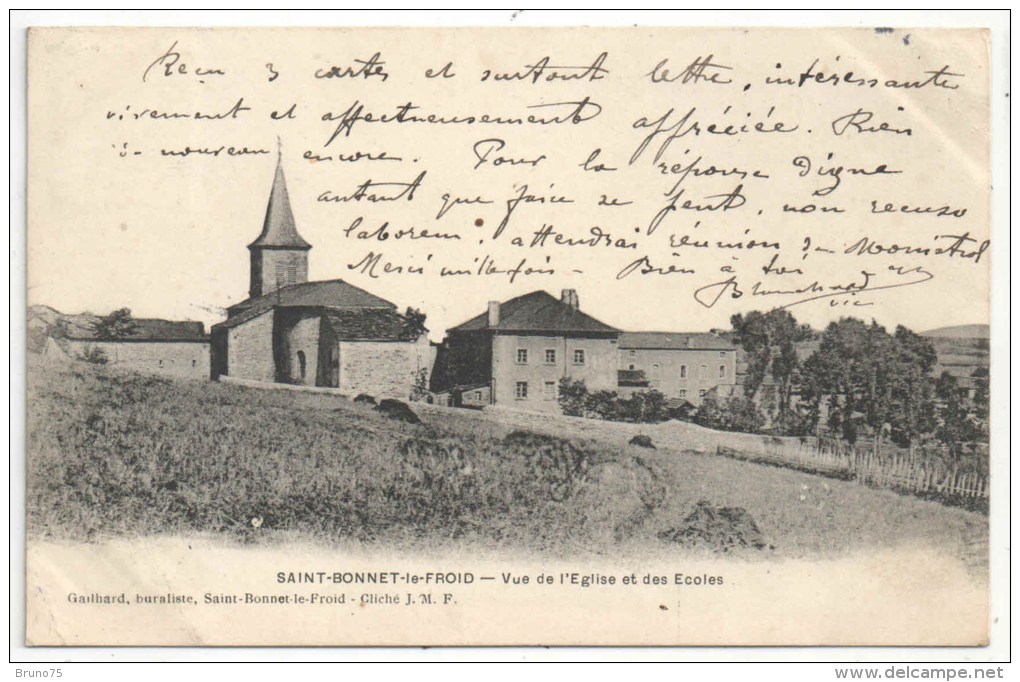 Reçu 3 cartes et surtout lettre, intéressante
vivement et affectueusement appréciée. Rien
nouveau encore. Pour la réponse Digne
autant que faire se peut, non recuso
laborem. attendrai réunion Monistrol
Merci mille fois - Bien à toi
Vic
SAINT-BONNET-le-FROID — Vue de l'Eglise et des Ecoles
Gailhard, buraliste, Saint-Bonnet-le-Froid - Cliché J. M. F.
Bruno75
www.delcampe.net